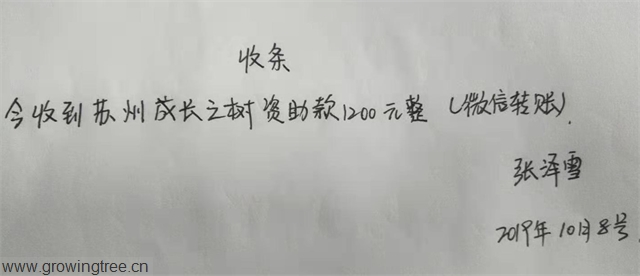 收条
今收到苏州成长之树资助款1200元整(微信转账).
张泽雪
2019年10月8号.
www.growingtree.cn